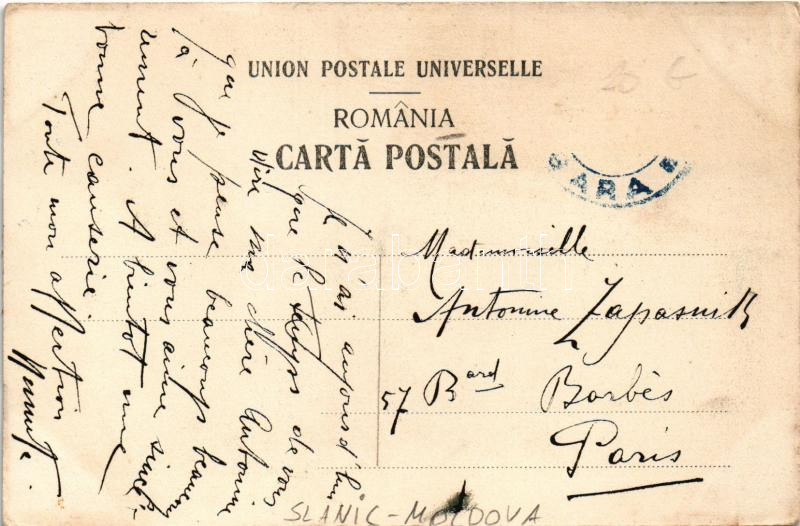 UNION POSTALE UNIVERSELLE
ROMÂNIA
CARTĂ POSTALĂ
GARA
Je n'ai aujourd'hui
que le temps de vous
dire ma chère Antonine
que je pense beaucoup beaucoup
à vous et vous aime sincè-
rement. A bientot une
bonne causerie.
Toute mon affection
Mademoiselle
Antonine Zapasnik
57 Bard Barbès
Paris
SLANIC-MOLDOVA
darabanth